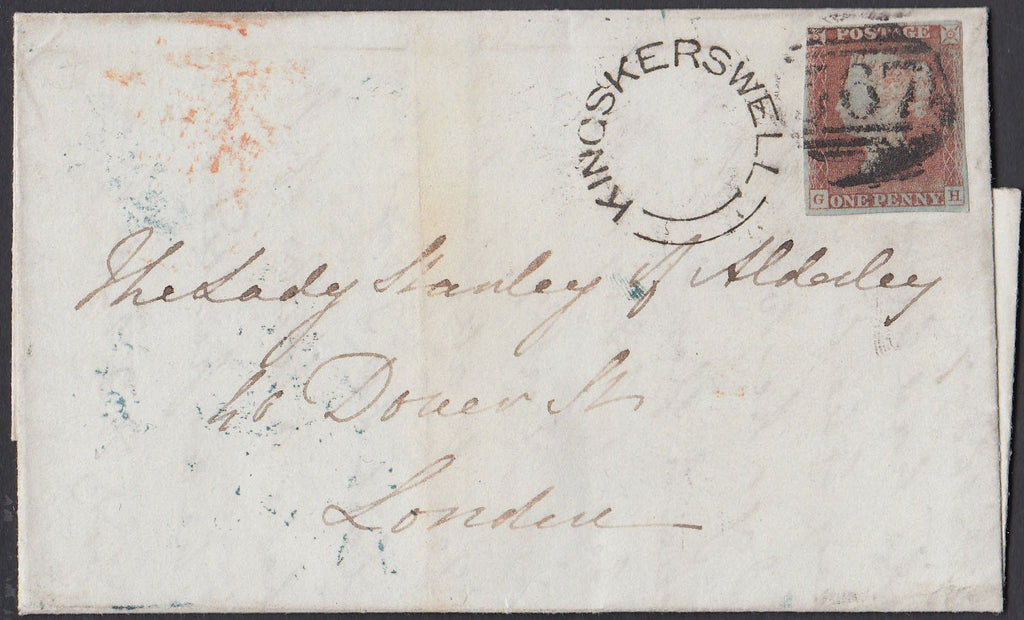 KINGSKERSWELL
POSTAGE
67
G ONE PENNY H
The Lady Stanley of Alderley
40 Dover St
London